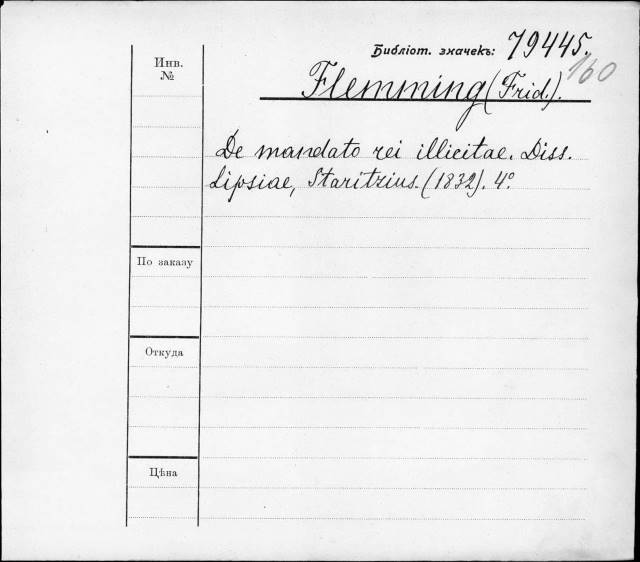 Библіот. значекъ: 79445.
160
Инв.
№
Flemming (Frid.).
De mandato rei illicitae. Diss.
Lipsiae, Staritzius. (1832). 4°.
По заказу
Откуда
Цѣна